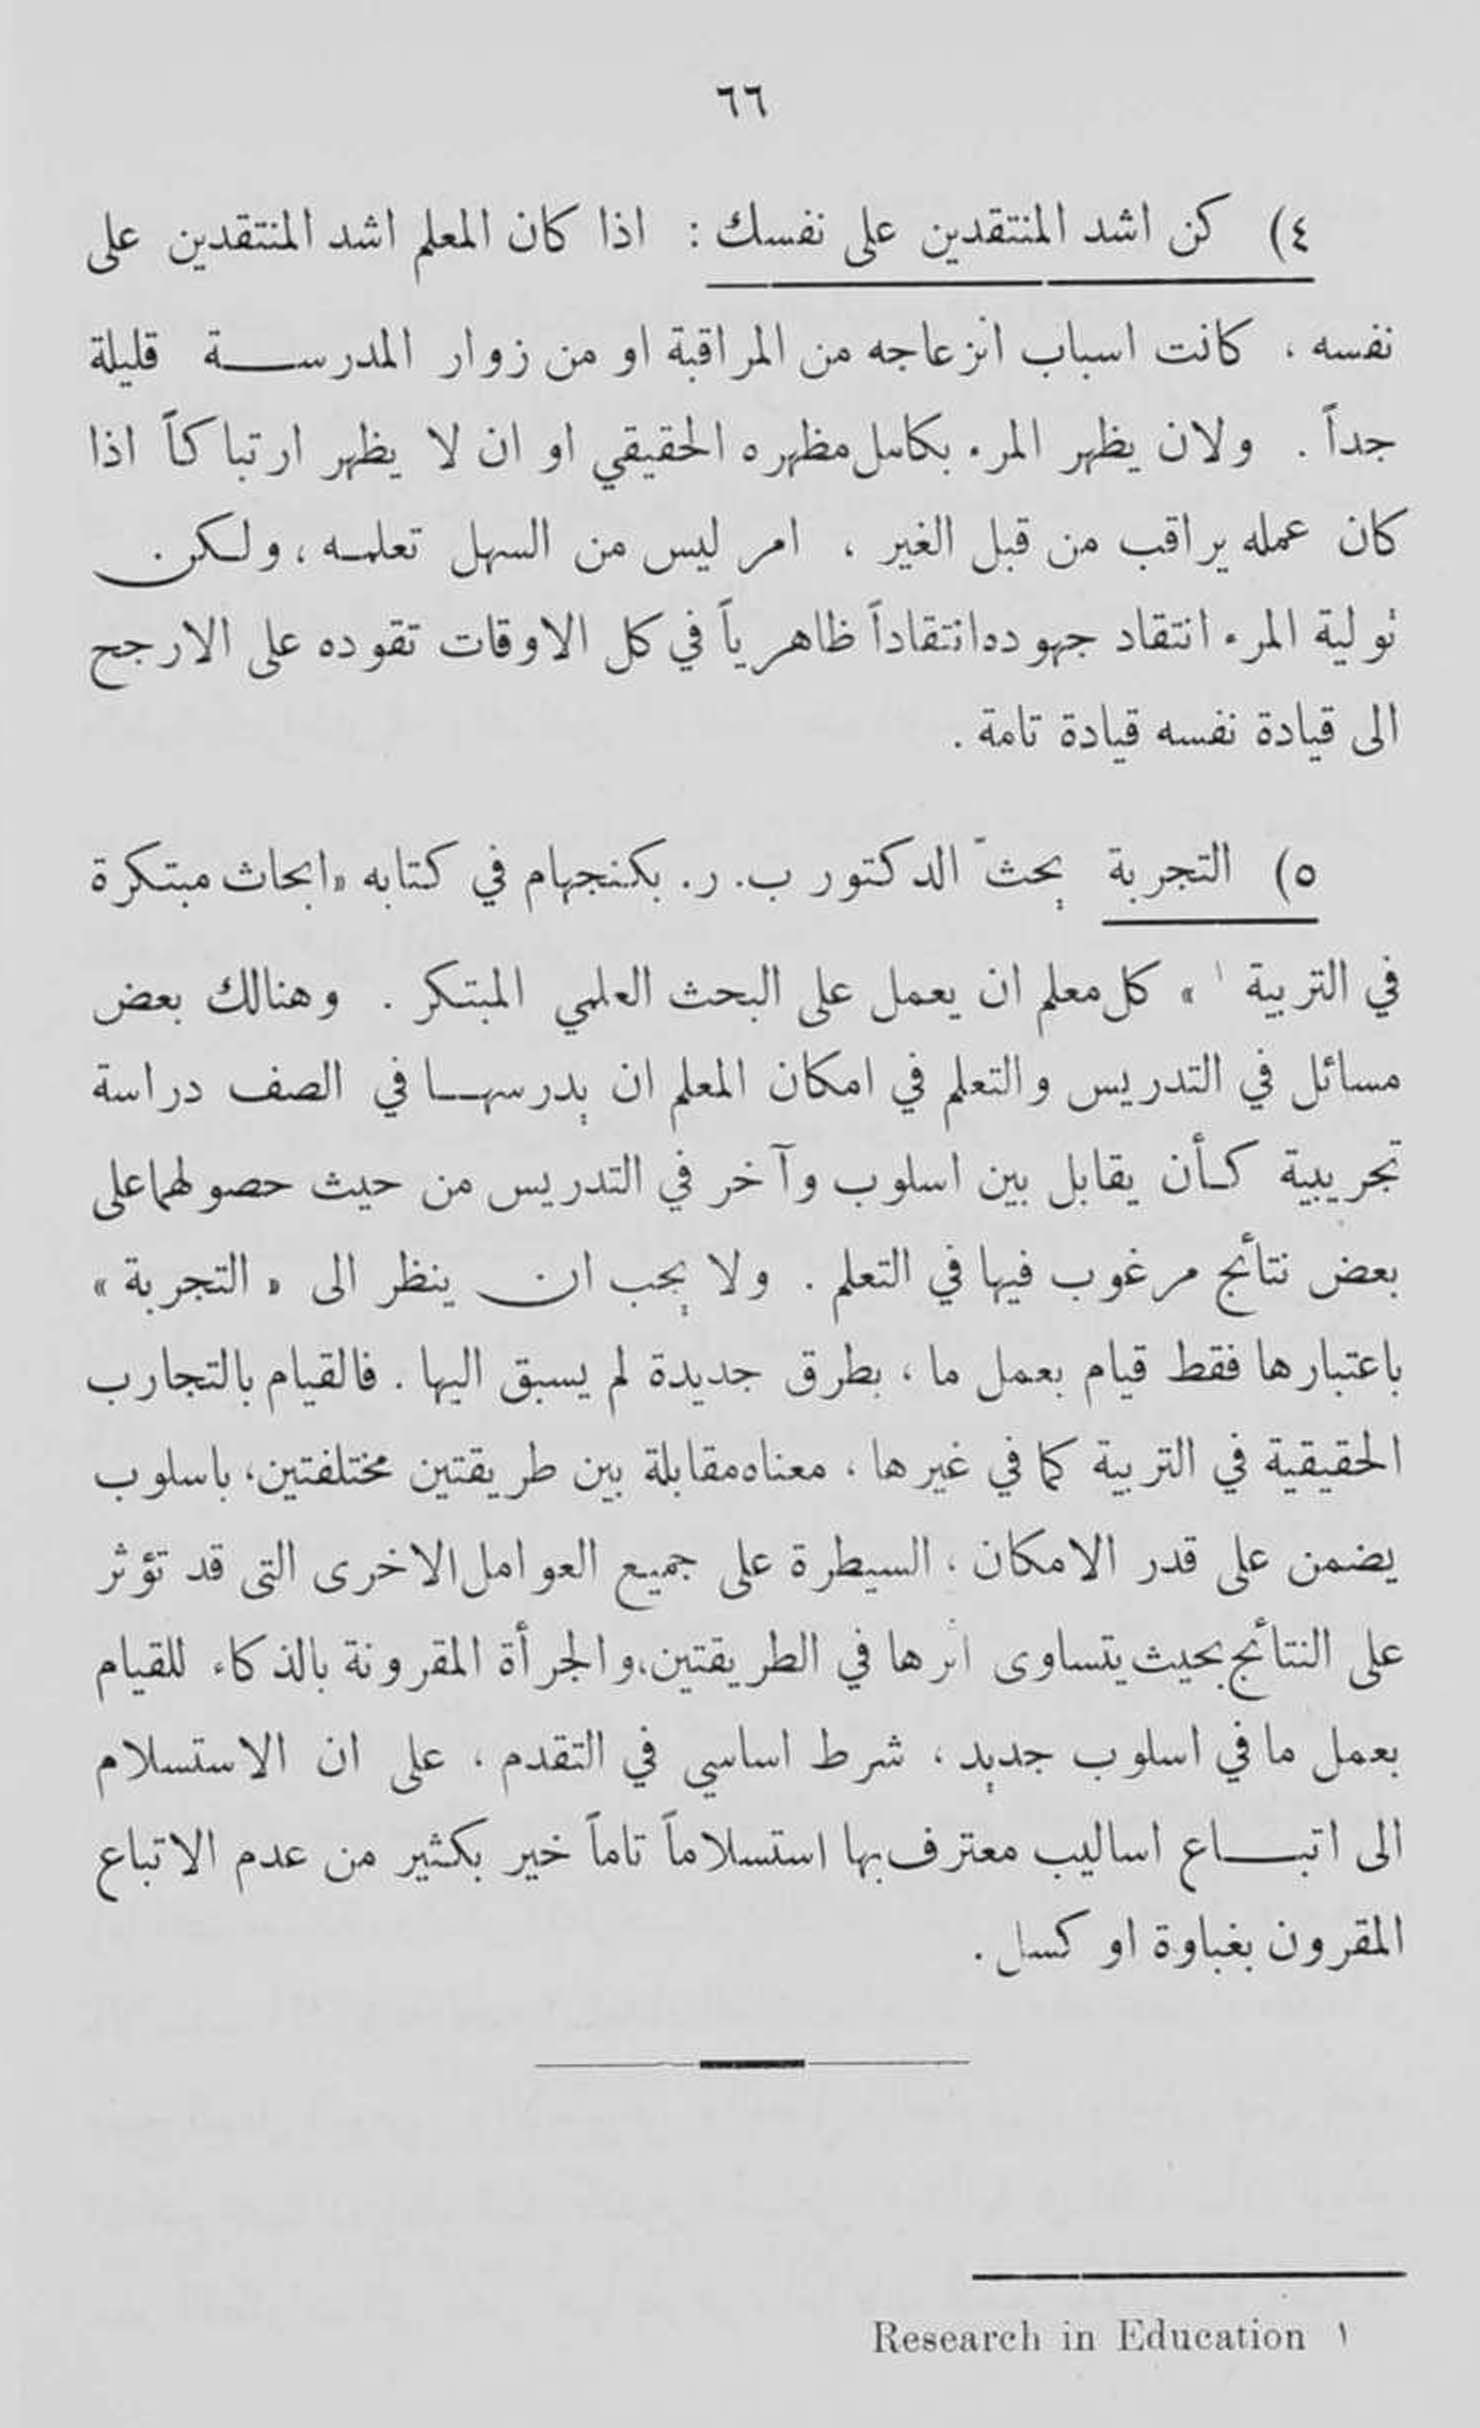 ٦٦
٤) كن اشد المنتقدين على نفسك : اذا كان المعلم اشد المنتقدين على
نفسه ، كانت اسباب انزعاجه من المراقبة او من زوار المدرســة قليلة
جداً . ولان يظهر المرء بكامل مظهره الحقيقي او ان لا يظهر ارتباكاً اذا
كان عمله يراقب من قبل الغير ، امر ليس من السهل تعلمـه ، ولـكن
تولية المرء انتقاد جهوده انتقاداً ظاهرياً في كل الاوقات تقوده على الارجح
الى قيادة نفسه قيادة تامة .
٥) التجربة يحثّ الدكتور ب. ر. بكنجهام في كتابه «ابحاث مبتكرة
في التربية ١ » كل معلم ان يعمل على البحث العلمي المبتكر . وهنالك بعض
مسائل في التدريس والتعلم في امكان المعلم ان يدرسهـا في الصف دراسة
تجريبية كـأن يقابل بين اسلوب وآخر في التدريس من حيث حصولهما على
بعض نتائج مرغوب فيها في التعلم . ولا يجب ان ينظر الى « التجربة »
باعتبارها فقط قيام بعمل ما ، بطرق جديدة لم يسبق اليها . فالقيام بالتجارب
الحقيقية في التربية كما في غيرها ، معناه مقابلة بين طريقتين مختلفتين، باسلوب
يضمن على قدر الامكان ، السيطرة على جميع العوامل الاخرى التى قد تؤثر
على النتائج بحيث يتساوى اثرها في الطريقتين، والجرأة المقرونة بالذكاء للقيام
بعمل ما في اسلوب جديد ، شرط اساسي في التقدم ، على ان الاستسلام
الى اتبــاع اساليب معترف بها استسلاماً تاماً خير بكثير من عدم الاتباع
المقرون بغباوة او كسل .
١ Research in Education